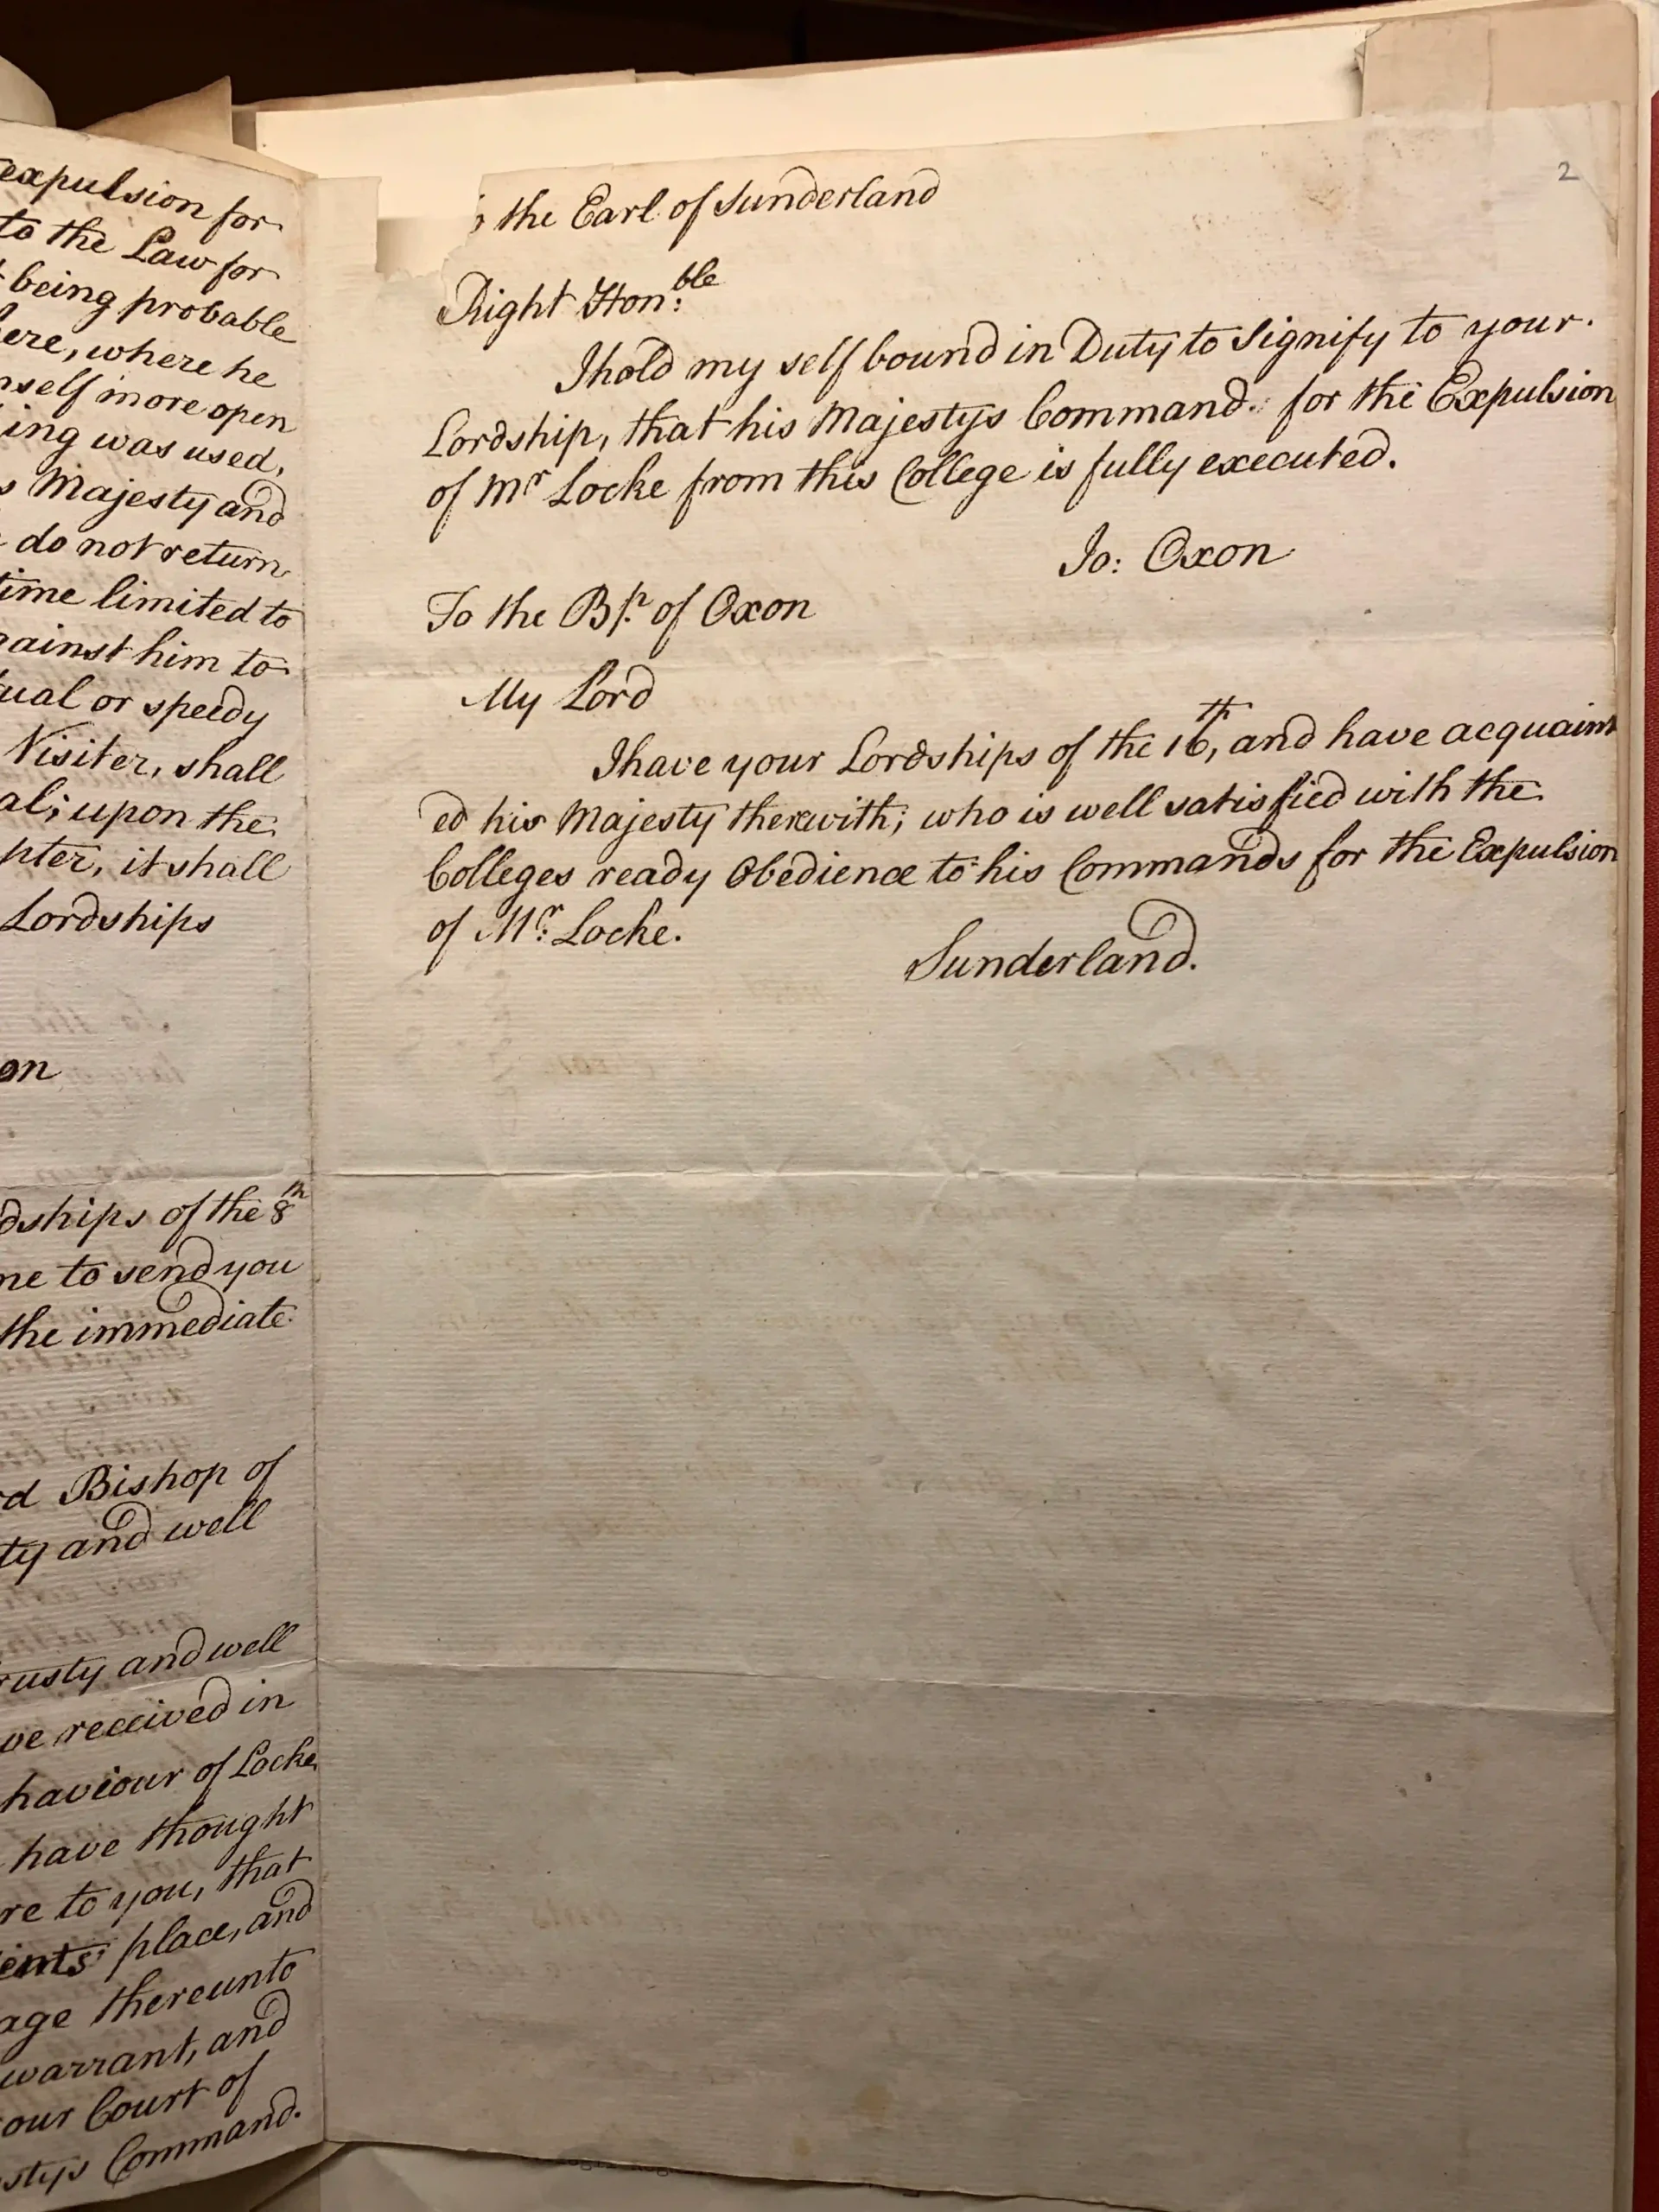 expulsion for
to the Law for
being probable
ere, where he
nself more open
ing was used,
s Majesty and
do not return
time limited to
gainst him to
tual or speedy
Visiter, shall
al; upon the
pter, it shall
Lordships
on
dships of the 8th
me to send you
the immediate
rd Bishop of
ty and well
rusty and well
ve received in
haviour of Locke
have thought
re to you, that
ents place, and
age thereunto
warrant, and
our Court of
stys Command.
2
the Earl of Sunderland
Right Hon:ble
I hold my self bound in Duty to signify to your
Lordship, that his Majestys Command for the Expulsion
of Mr Locke from this College is fully executed.
Jo: Oxon
To the Bp. of Oxon
My Lord
I have your Lordships of the 16th, and have acquaint
ed his Majesty therewith; who is well satisfied with the
Colleges ready Obedience to his Commands for the Expulsion
of Mr: Locke.
Sunderland.